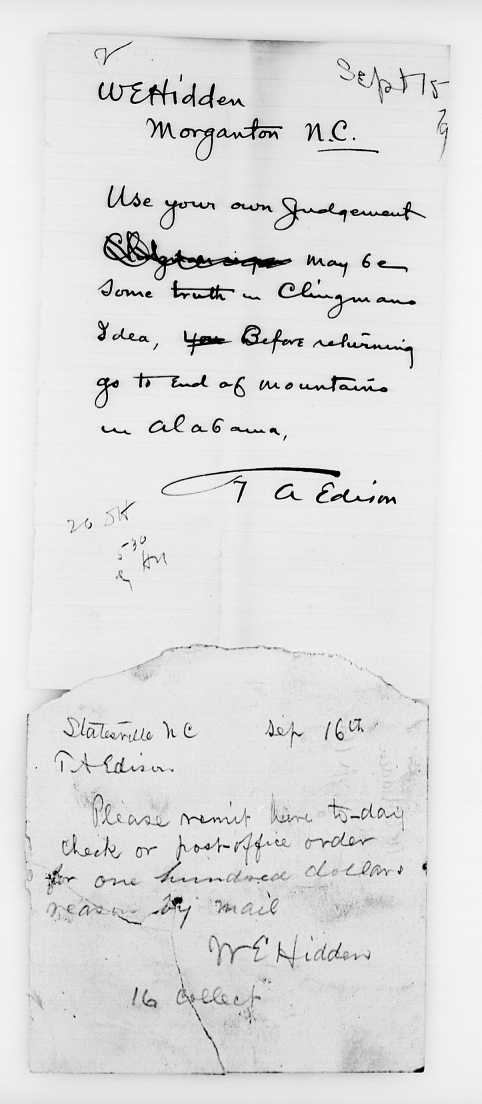 Sept 15
79
W E Hidden
Morganton N.C.
Use your own Judgement
may be
Some truth in Clingmans
Idea, you Before returning
go to End of mountains
in Alabama,
T A Edison
20
5 30
Statesville N C Sep 16th
T. A Edison.
Please remit here to-day
check or post-office order
for one hundred dollars
reason by mail
W E Hidden
16 collect